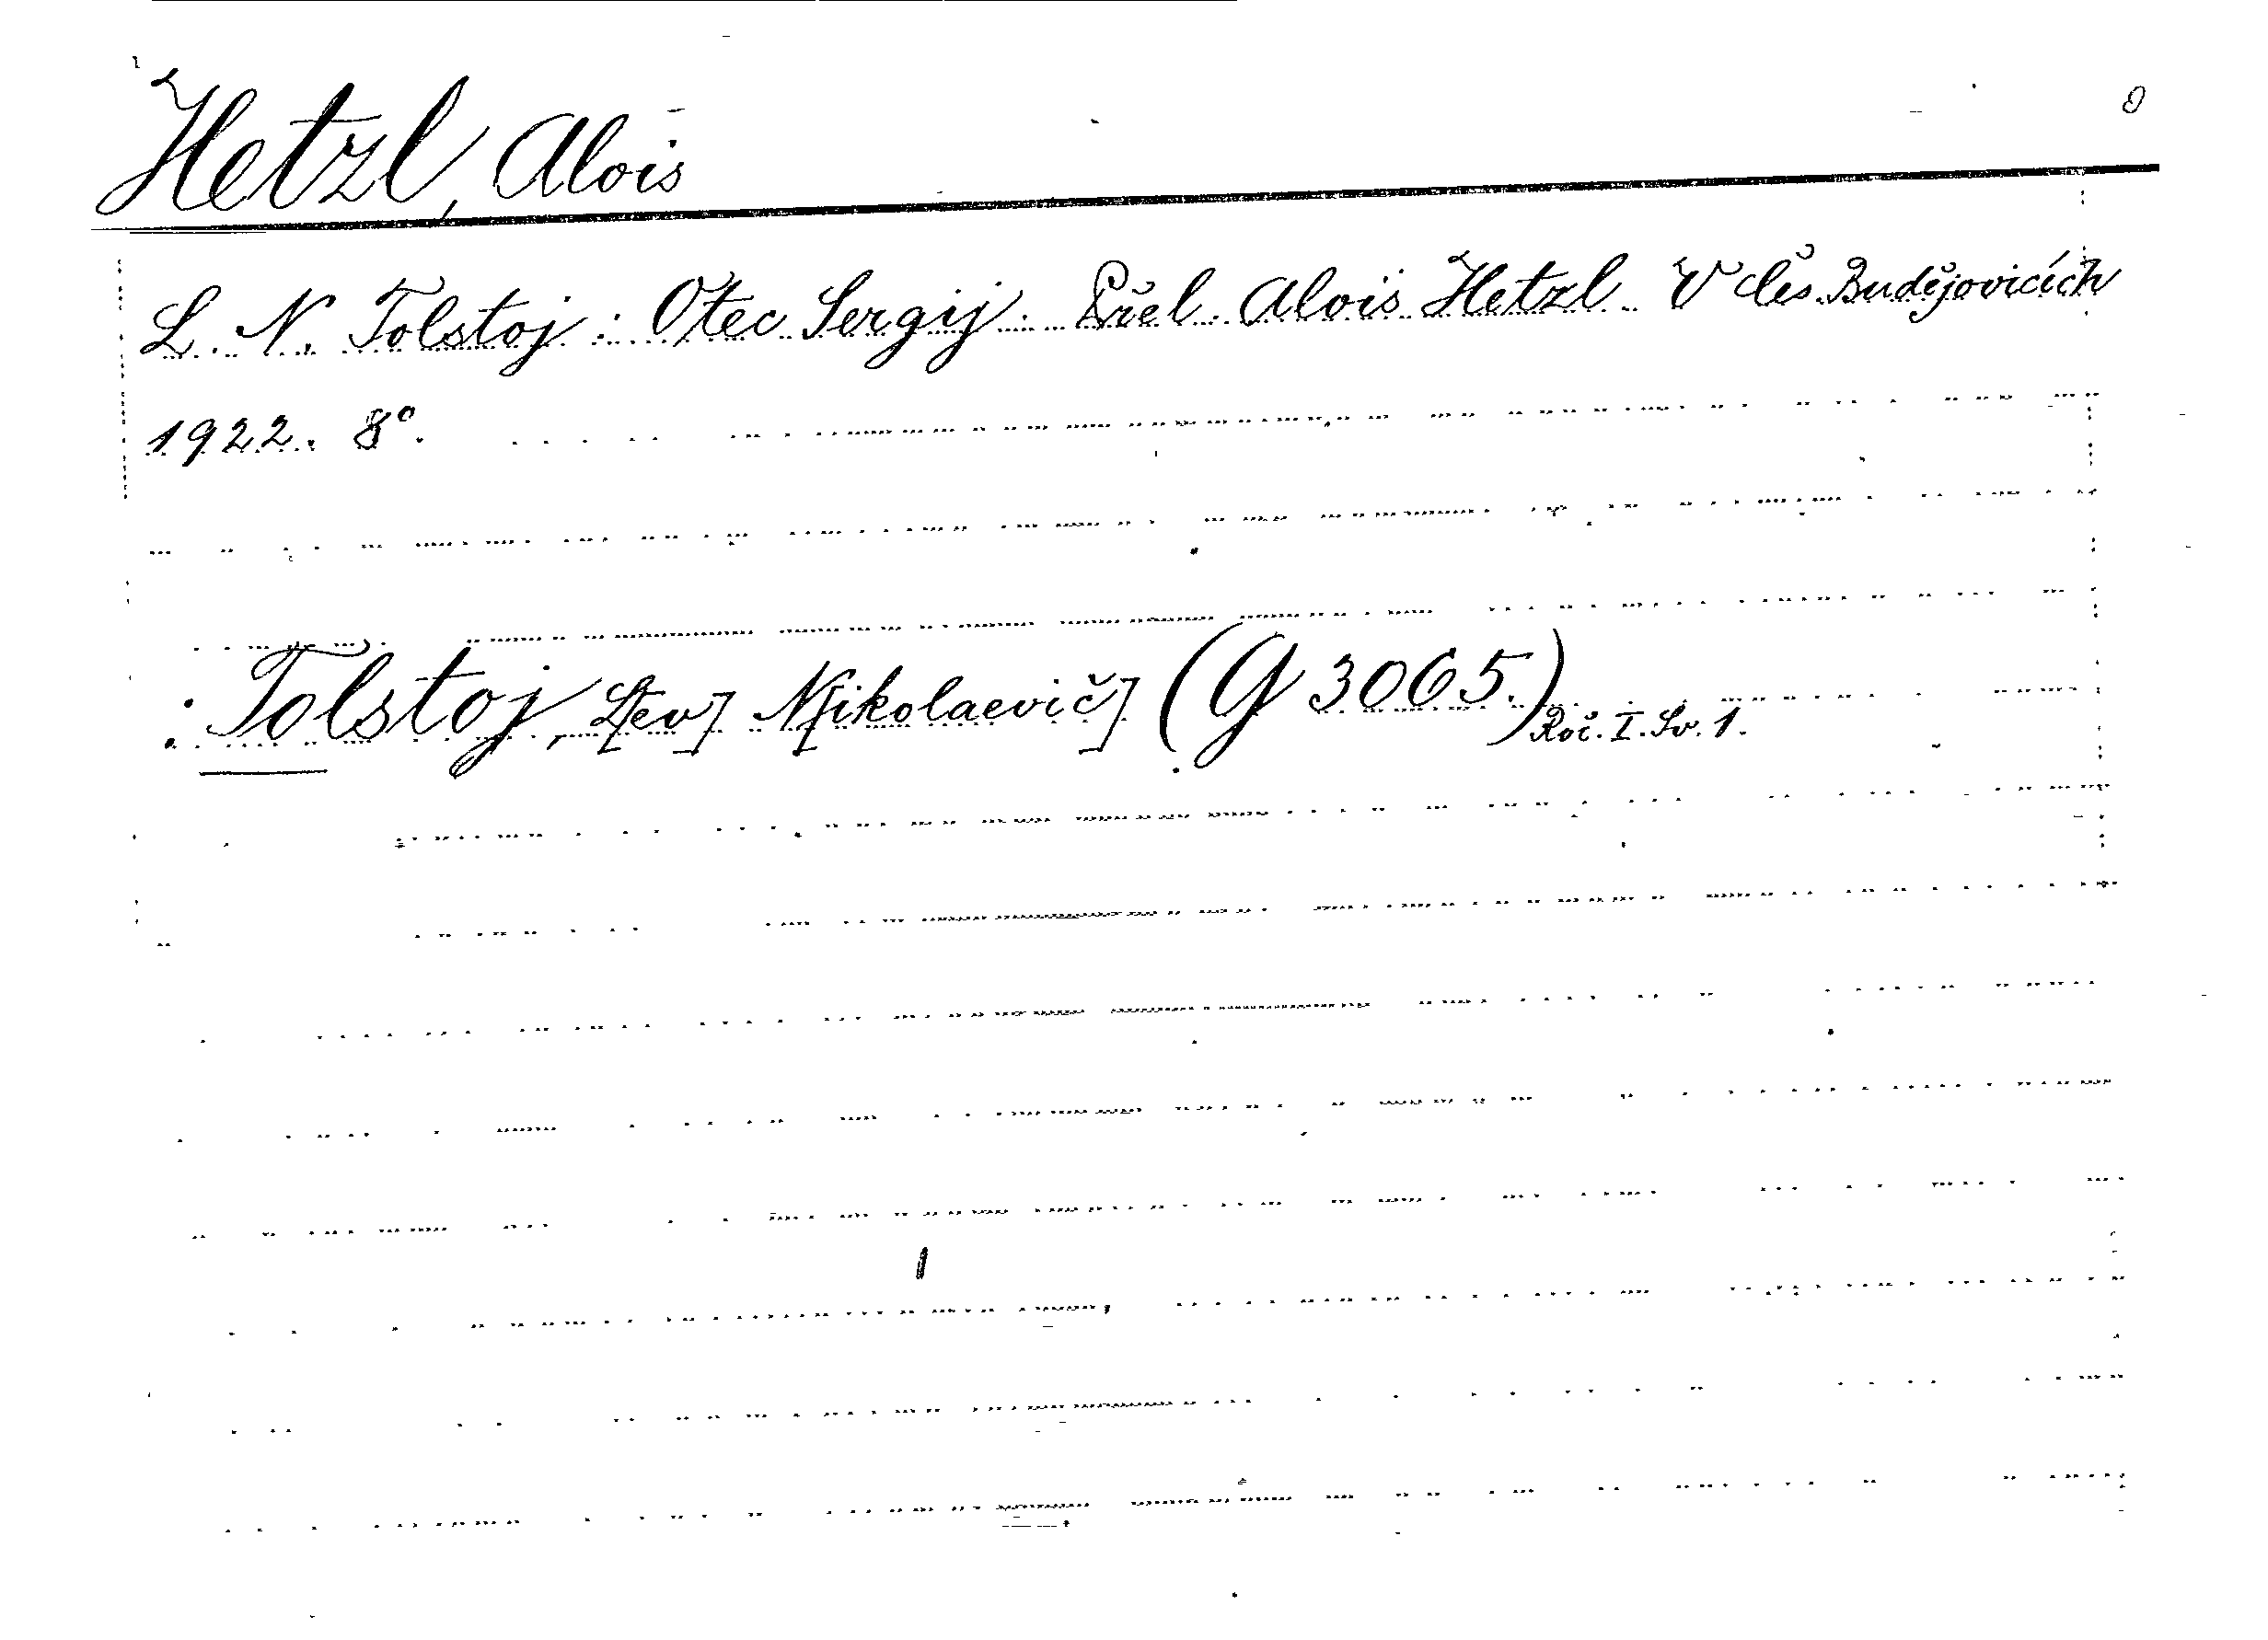 Hetzl, Alois
L. N. Tolstoj: Otec Sergij. Přel. Alois Hetzl. V Čes. Budějovicích
1922. 8°.
: Tolstoj, L[ev] N[ikolaevič] (G 3065.) Roč. I. Sv. 1.